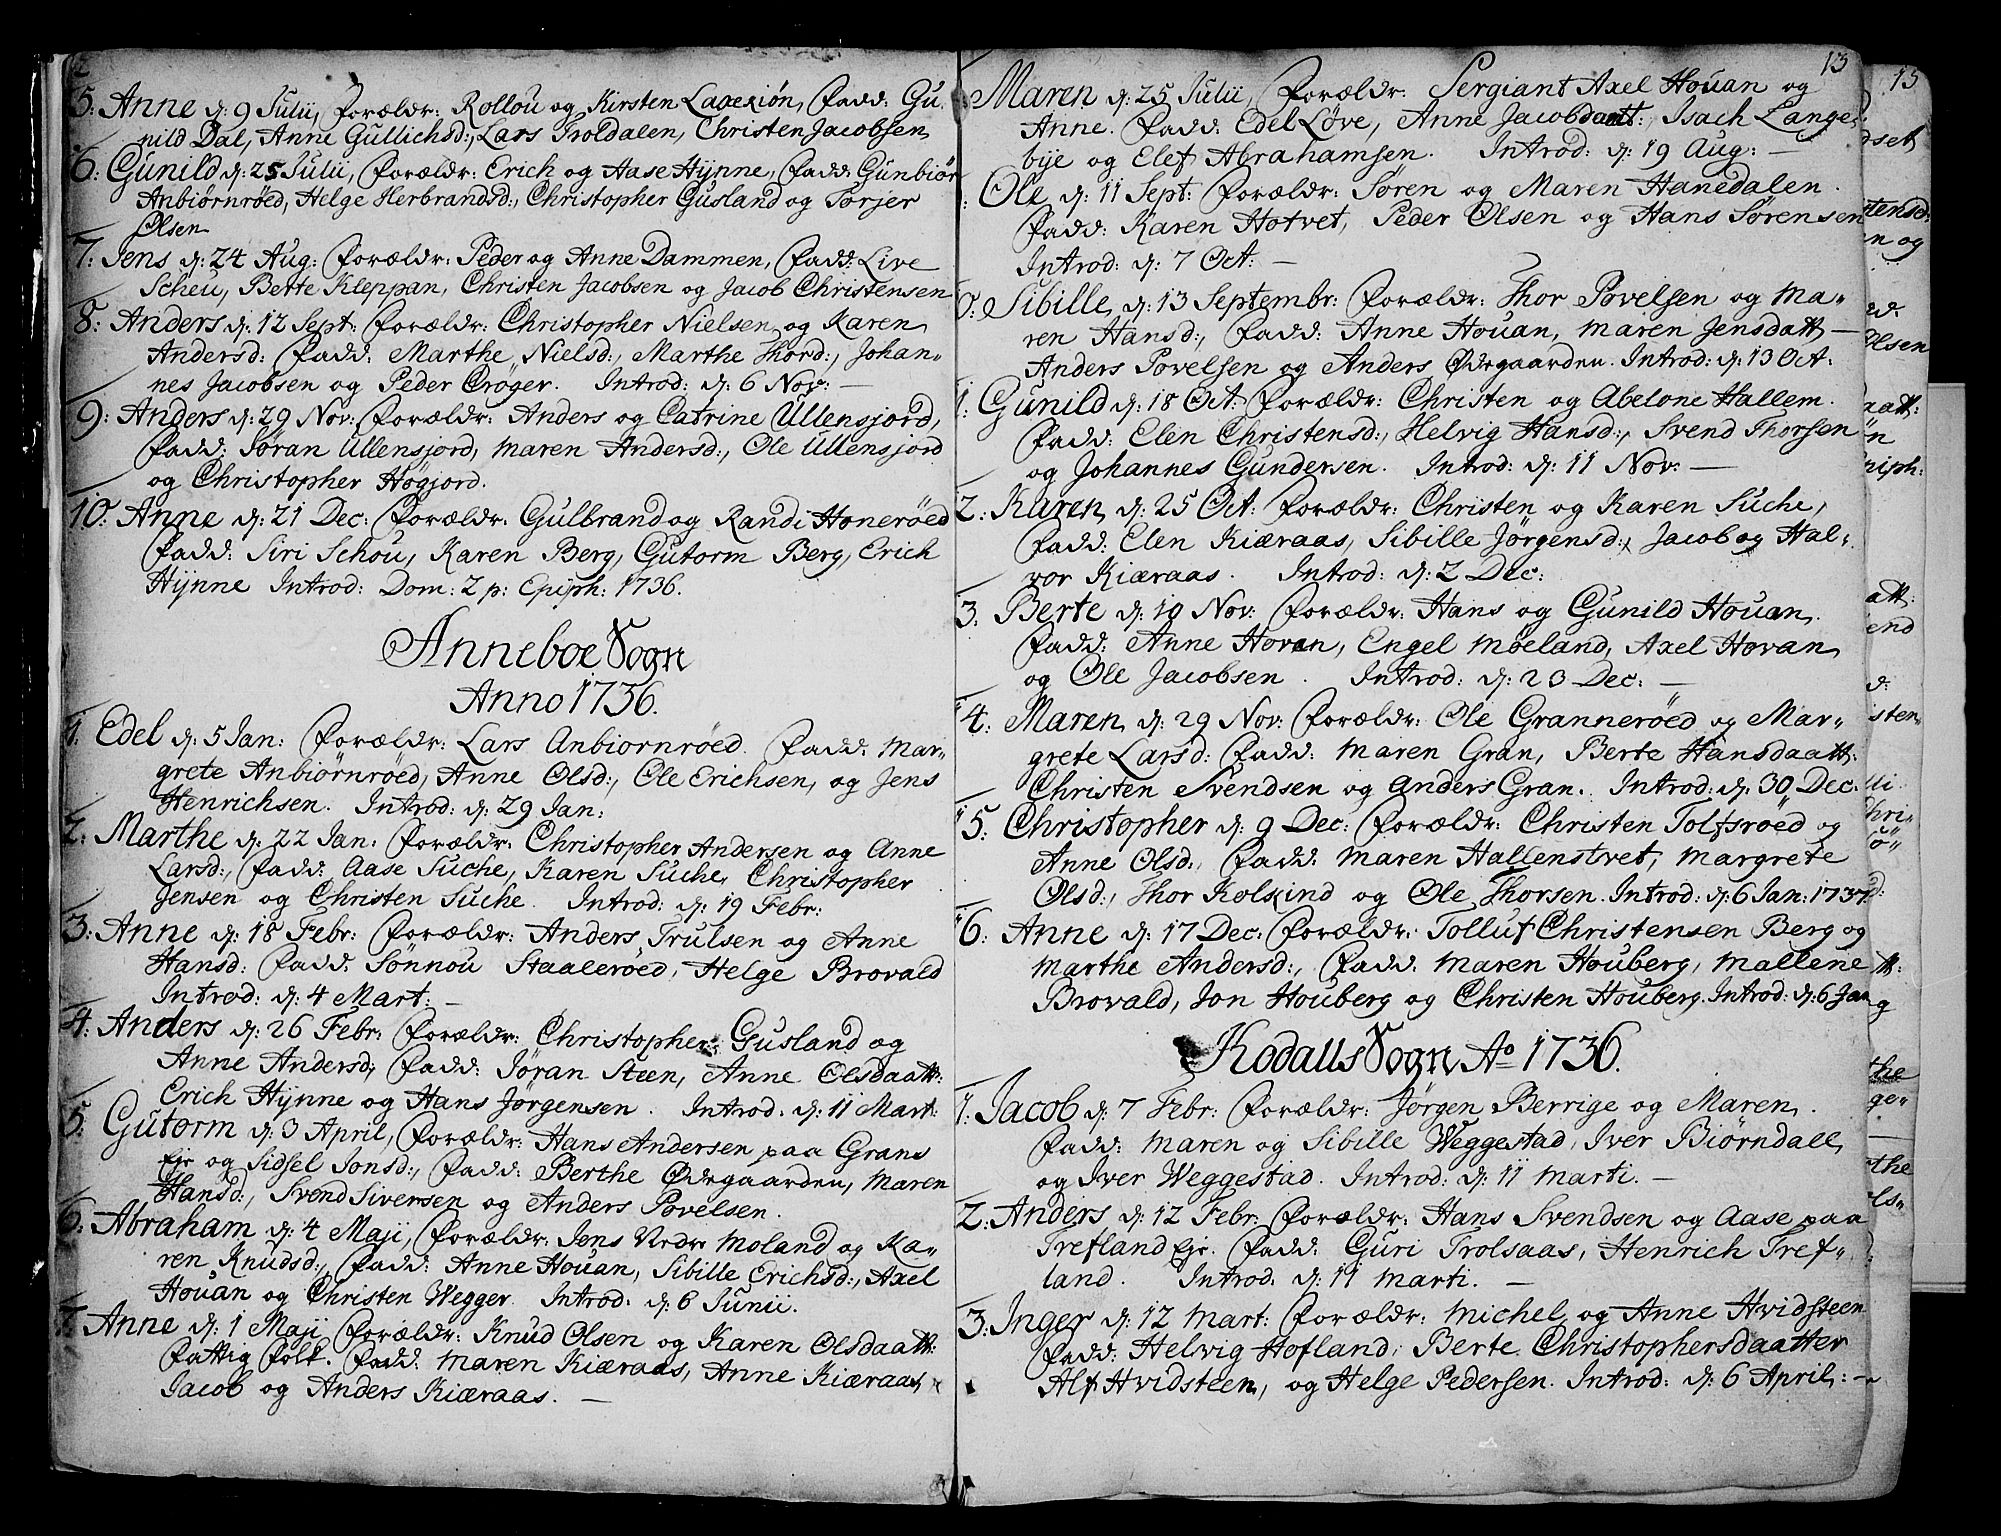 12
5: Anne d: 9 Julii, Forældr: Rollou og Kirsten Laxesiön, Fadd: Gu-
nild Dal, Anne Gullichsd:, Lars Troldalen, Christen Jacobsen
6: Gunild d: 25 Julii, Forældr: Erich og Aase Hÿnne, Fadd: Gunbiör
Anbiörnröed, Helge Herbrandsd:, Christopher Gusland og Torjer
Olsen
7. Jens d: 24 Aug: Forældr: Peder og Anne Dammen, Fadd: Live
Scheu, Berte Kleppan, Christen Jacobsen og Jacob Christensen
8: Anders d: 12 Sept: Forældr: Christopher Nielsen og Karen
Andersd: Fadd. Marthe Nielsd:, Marthe Thord:, Johan-
nes Jacobsen og Peder Cröger. Introd: d: 6 Nov: —
9: Anders d: 29 Nov: Forældr: Anders og Catrine Ullensjord,
Fadd: Joran Ullensjord, Maren Andersd:, Ole Ullensjord
og Christopher Högjord.
10: Anne d: 21 Dec: Forældr: Gulbrand og Randi Honeröed
Fadd: Siri Schou, Karen Berg, Gutorm Berg, Erich
Hÿnne Introd: Dom: 2 p: Epiph: 1736.
Anneboe Sogn
Anno 1736.
1. Edel d: 5 Jan: Forældr: Lars Anbiornröed. Fadd: Mar-
grete Anbiörnröed, Anne Olsd:, Ole Erichsen, og Jens
Henrichsen. Introd: d: 29 Jan:
2: Marthe d: 22 Jan: Forældr: Christopher Andersen og Anne
Larsd:, Fadd: Aase Suche, Karen Suche, Christopher
Jensen og Christen Suche. Introd: d: 19 Febr:
3: Anne d: 18 Febr: Forældr: Anders Trulsen og Anne
Hansd: Fadd: Sönnou Staaleröed, Helge Brovald
Introd: d: 4 Mart: —
4: Anders d: 26 Febr: Forældr: Christopher Gusland og
Anne Andersd: Fadd: Jöran Steen, Anne Olsdaatt:
Erich Hÿnne og Hans Jörgensen. Introd: d: 11 Mart:
5: Gutorm d: 3 April, Forældr: Hans Andersen paa Grans
Eje og Sidsel Jonsd:, Fadd: Berthe Ødegaarden, Maren
Hansd:, Svend Siversen og Anders Povelsen.
6: Abraham d: 4 Maji, Forældr: Jens Nedr Moland og Ka-
ren Knudsd:, Fadd: Anne Houan, Sibille Erichsd:, Axel
Houan og Christen Wegger. Introd: d: 6 Junii.
7. Anne d: 1 Maji Forældr: Knud Olsen og Karen Olsdaatt:
Fattig Folk. Fadd. Maren Kiæraas, Anne Kiæraas,
Jacob og Anders Kiæraas. —
13
Maren d: 25 Julii, Forældr: Sergiant Axel Houan og
Anne. Fadd: Edel Löve, Anne Jacobsdaatt:, Isach Lange-
bÿe og Elef Abrahamsen. Introd: d: 19 Aug: —
Ole d: 11 Sept: Forældr: Sören og Maren Hanedalen.
Fadd: Karen Hotvet, Peder Olsen og Hans Sörensen
Introd: d: 7 Oct: —
0: Sibille, d: 13 Septembr: Forældr: Thor Povelsen og Ma-
ren Hansd:, Fadd: Anne Houan, Maren Jensdatt —
Anders Povelsen og Anders Ødegaarden. Introd: d: 13 Oct:
1: Gunild d: 18 Oct: Forældr: Christen og Abelone Hallem.
Fadd: Elen Christensd:, Helvig Hansd:, Svend Thorsen
og Johannes Gundersen. Introd: d: 11 Nov: —
2: Karen d: 25 Oct: Forældr: Christen og Karen Suche,
Fadd: Elen Kiæraas, Sibille Jörgensd:, Jacob og Hal-
vor Kiæraas. Introd: d: 2 Dec:
3. Berte d: 19 Nov: Forældr: Hans og Gunild Houan.
Fadd: Anne Hovan, Engel Moeland, Axel Hovan
og Ole Jacobsen. Introd: d: 23 Dec: —
4: Maren d: 29 Nov: Forældr: Ole Granneröed og Mar-
grete Larsd: Fadd: Maren Gran, Berte Hansdaatt:
Christen Svendsen og Anders Gran. Introd: d: 30 Dec:
5: Christopher d: 9 Dec: Forældr: Christen Tolfsröed og
Anne Olsd:, Fadd: Maren Hallenstvet, Margrete
Olsd:, Thor Kolskind og Ole Thorsen. Introd: d: 6 Jan: 1737
6: Anne d: 17 Dec: Forældr: Tolluf Christensen Berg og
Marthe Andersd:, Fadd: Maren Houberg, Mallene
Brovald, Jon Houberg og Christen Houberg. Introd: d: 6 Jan
Kodalls Sogn Ao 1736.
1. Jacob d: 7 Febr: Forældr: Jörgen Berrige og Maren.
Fadd: Maren og Sibille Weggestad, Iver Biörndall
og Iver Weggestad. Introd: d: 11 Marti. —
2: Anders d: 12 Febr: Forældr: Hans Svendsen og Aase paa
Trefland Eje. Fadd: Guri Trolsaas, Henrich Tref-
land. Introd: d: 11 Marti. —
3: Inger d: 12 Mart: Forældr: Michel og Anne Hvidsteen
Fadd: Helvig Hofland, Berte Christophersdaatter
Alf Hvidsteen, og Helge Pedersen. Introd: d: 6 April: —
15